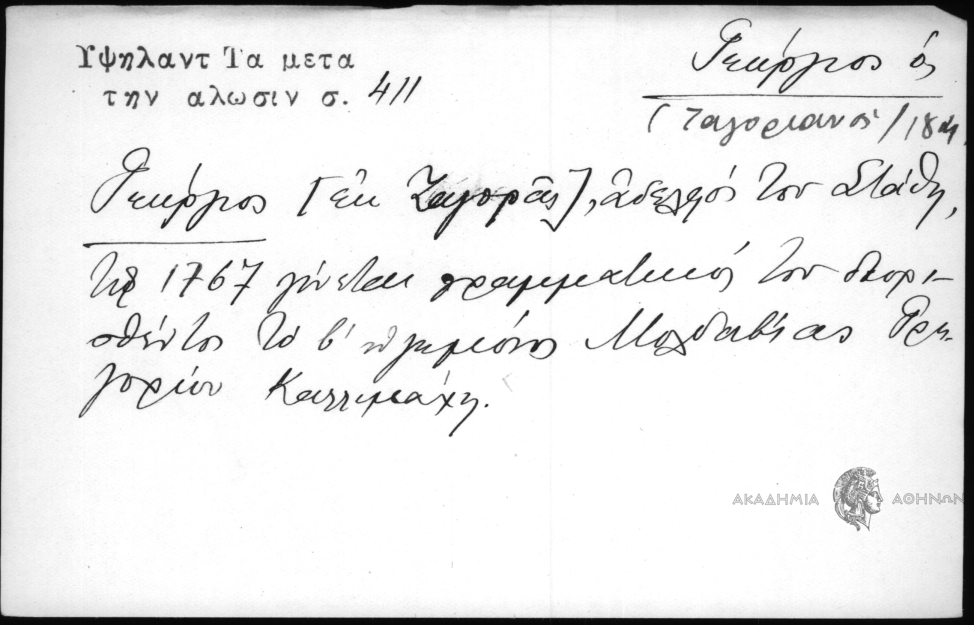 Υψηλαντ Τα μετα
την αλωσιν σ. 411
Γεώργιος ὁ
(Ζαγοριανός) 18
Γεώργιος [ἐκ Ζαγορᾶς], ἀδελφός του Στάθη,
τῷ 1767 γίνεται γραμματικός του διορι-
σθέντος τὸ β' ἡγεμόνος Μολδαβίας Γρη-
γορίου Καλλιμάχη.
ΑΚΑΔΗΜΙΑ ΑΘΗΝΩΝ